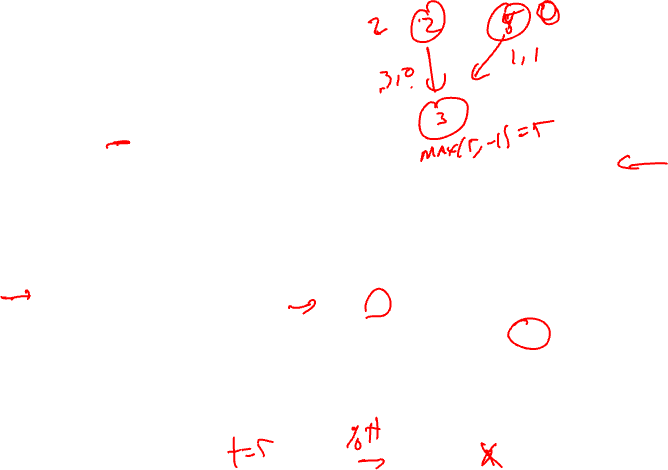 2 2 8 0
3,0 1,1
3
MAX(5,-1)=5
t=5 %H x